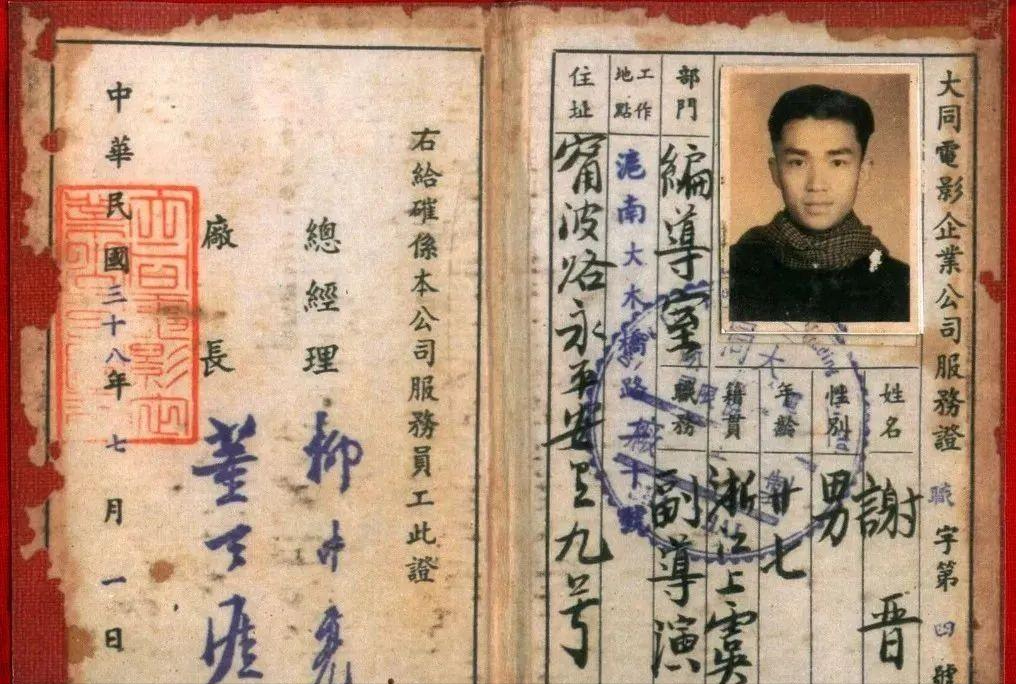 大同電影企業公司服務證 職字第四號
姓名 謝晋
性別 男
年齡 廿七
籍貫 浙江上虞
職務 副導演
部門 編導室
工作地點 滬南大木橋路十號
住址 甯波路永平安里九号
右給確係本公司服務員工此證
總經理 柳中亮
廠長 董天涯
中華民國三十八年七月一日